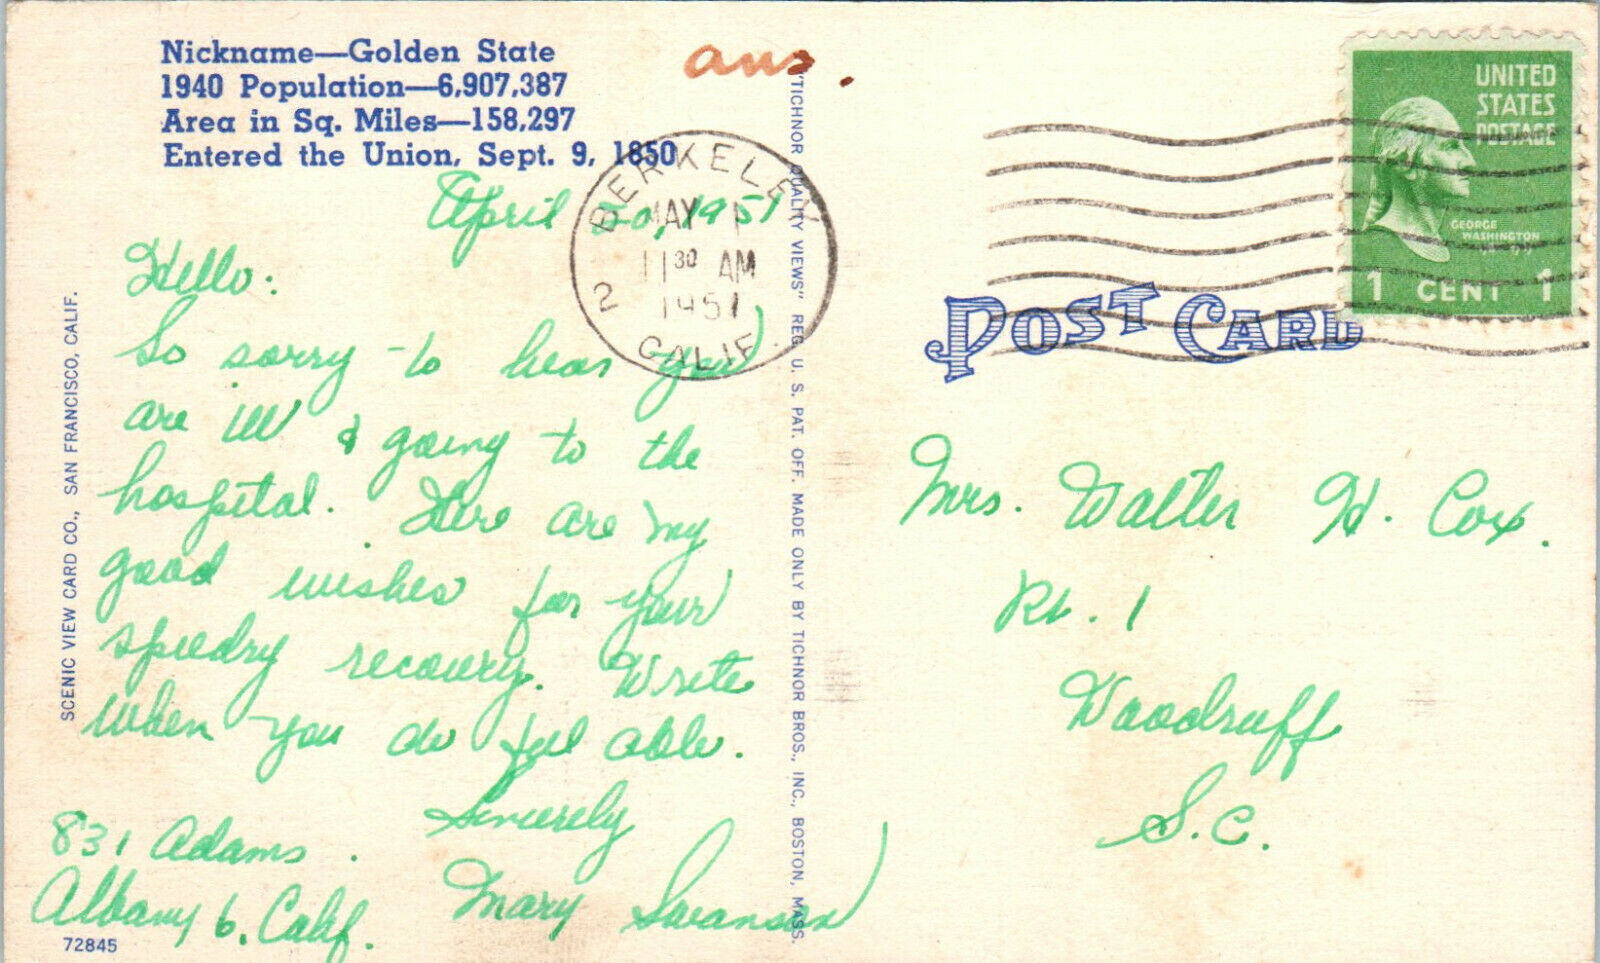 Nickname—Golden State
1940 Population—6,907,387
Area in Sq. Miles—158,297
Entered the Union, Sept. 9, 1850
ans.
April 20, 1951
Hello:
So sorry to hear you
are ill & going to the
hospital. Here are my
good wishes for your
speedry recovery. Write
when you do feel able.
Sincerely
Mary Swanson
831 Adams.
Albany 6, Calif.
72845
SCENIC VIEW CARD CO., SAN FRANCISCO, CALIF.
BERKELEY
MAY 1
11 30 AM
1951
2 CALIF.
"TICHNOR QUALITY VIEWS" REG. U. S. PAT. OFF. MADE ONLY BY TICHNOR BROS., INC., BOSTON, MASS.
UNITED
STATES
POSTAGE
GEORGE
WASHINGTON
1 CENT 1
POST CARD
Mrs. Walter H. Cox.
Rt. 1
Woodruff
S.C.